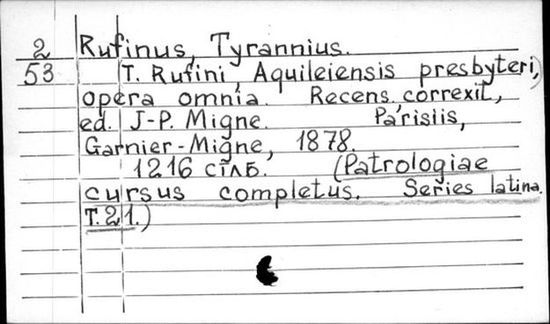 2 Rufinus, Tyrannius.
53 T. Rufini, Aquileiensis presbyteri,
opera omnia. Recens, correxit,
ed. J-P. Migne. Parisiis,
Garnier-Migne, 1878.
1216 стлб. (Patrologiae
cursus completus. Series latina.
T.21.)